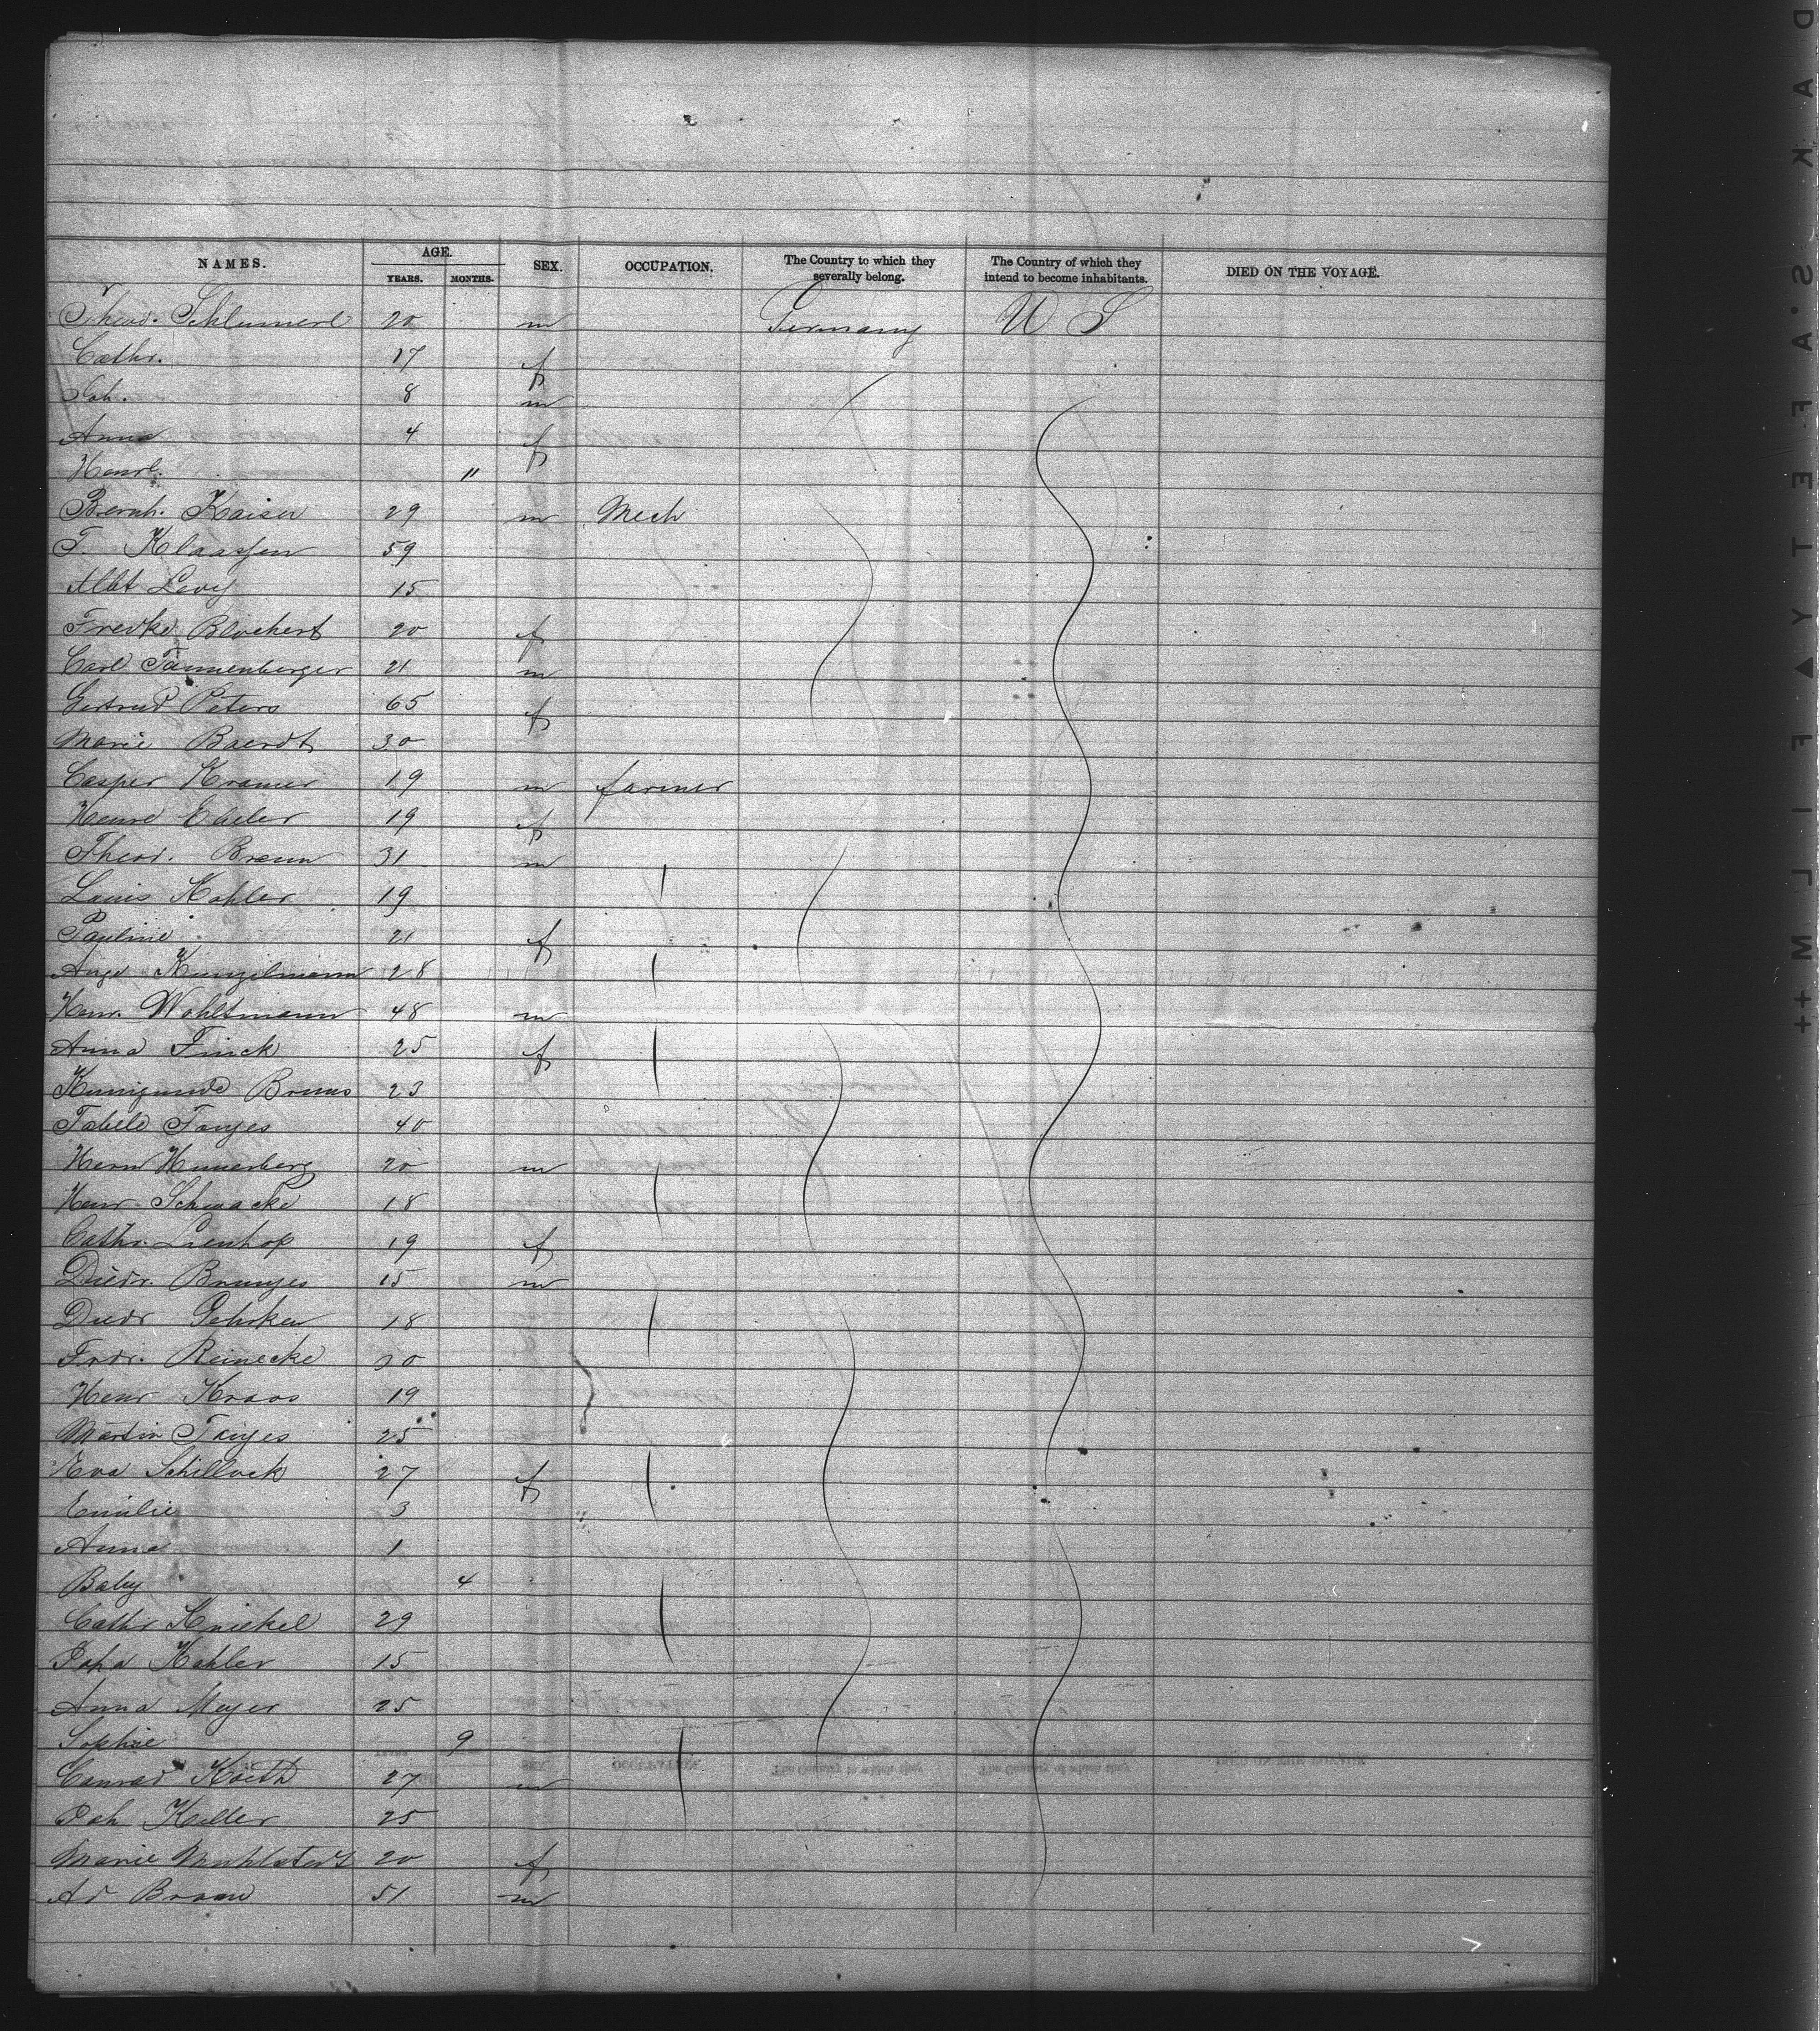 NAMES. AGE. YEARS. MONTHS. SEX. OCCUPATION. The Country to which they severally belong. The Country of which they intend to become inhabitants. DIED ON THE VOYAGE.
Theod. 20 m Germany U S
Cathr. 17 f
Joh. 8 m
Anna 4 f
Henri. "
Bernh. Kaiser 29 m Mech
T. Klaassen 59
Albt Levy 15
Fredke Blockert 20 f
Carl Tannenberger 21 m
Gertrud Peters 65 f
Marie Baerdt 30
Casper Kramer 19 m farmer
Henre Eheler 19 f
Theod. Braun 31 m
Louis Kohler 19
Pauline 21 f
Auge Kunzelmann 28
Henr. Wohltmann 48 m
Anna Finck 25 f
Kunigunde Bruns 23
Tabele Tonjes 40
Herm Hunerberg 20 m
Henr. Schwacke 18
Cathr. Lienhop 19 f
Diedr. Brunjes 15 m
Diedr Gehrken 18
Fredr. Reinecke 20
Henr Kraos 19
Martin Tonjes 25
Eva Schillock 27 f
Emilie 3
Anna 1
Baby 4
Cathr Knickel 29
Joha Kohler 15
Anna Meyer 25
Sophie 9
Conrad Koeth 27 m
Joh Keller 25
Marie Muhlstedt 20 f
Ad Braun 51 m